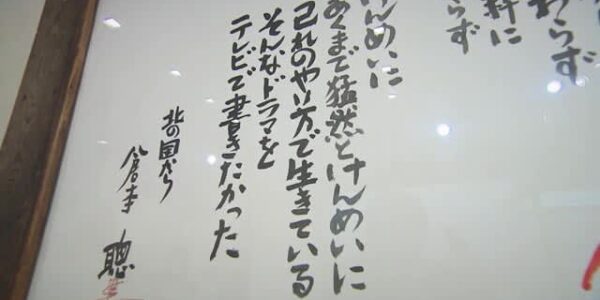 わらず
料に
らず
けんめいに
あくまで猛然とけんめいに
己れのやり方で生きている
そんなドラマを
テレビで書きたかった
北の国から
倉本 聰